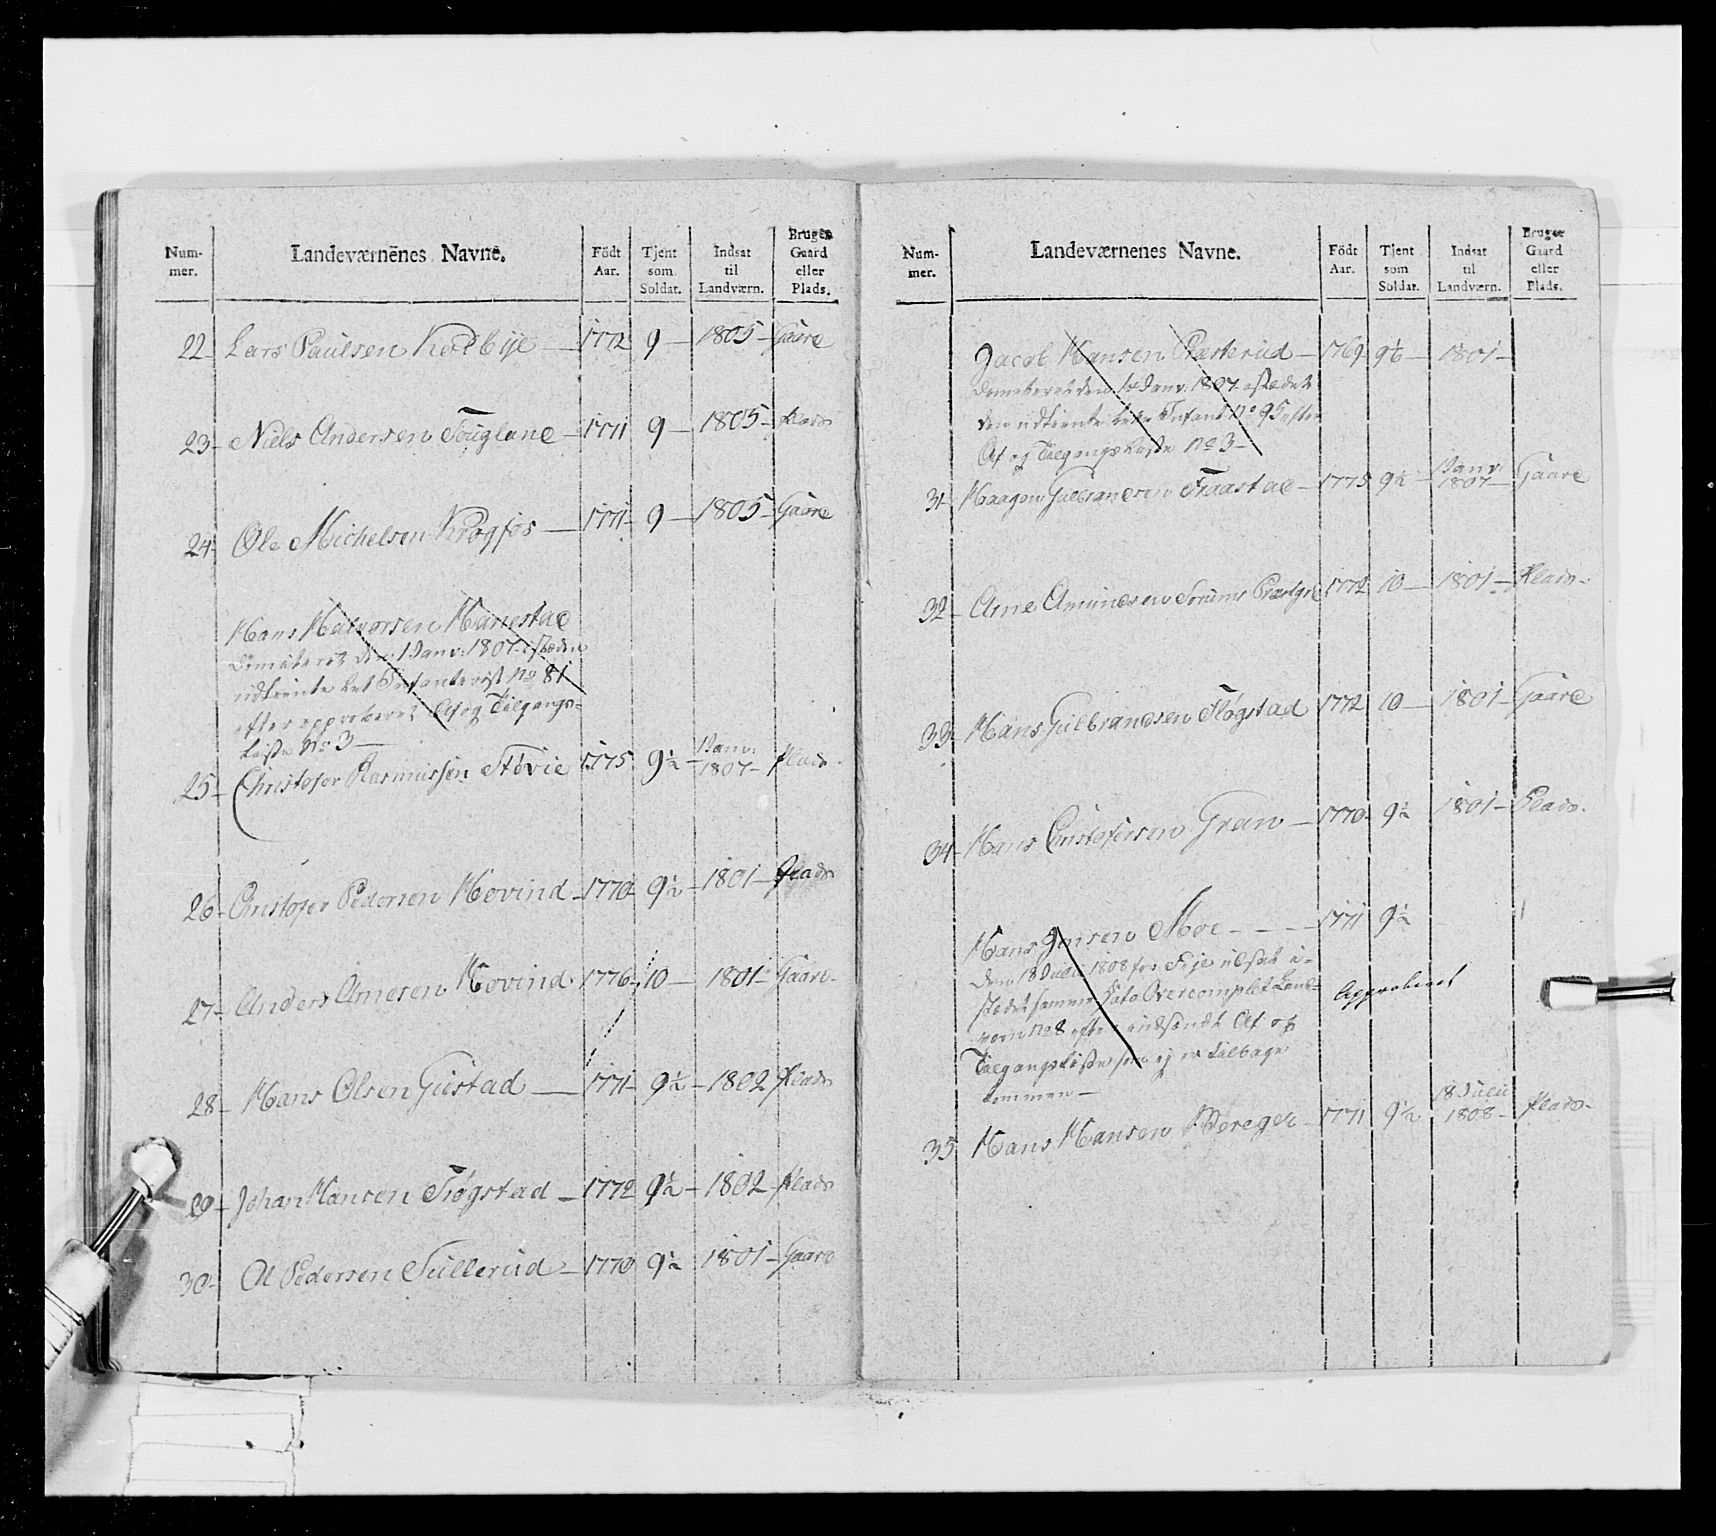 Num-
mer.
Landeværnenes Navne.
Födt
Aar.
Tjent
som
Soldat.
Indsat
til
Landværn.
Bruger
Gaard
eller
Plads.
22 Lars Paulsen Kolbye 1772 9 1805 Gaard
23 Niels Andersen Fougland 1771 9 1805 Plads
24 Ole Michelsen Krogfos 1771 9 1805 Gaard
Hans Halvorsen Hanestad
Dimiteret den 1 Janv: 1807 istæden
udtiente Let Infanterist No 81
efter approberet Af og Tilgangs-
Liste No 3
25 Christofer Rasmussen Støvie 1775 9½ 1 Janv: 1807 Plads
26 Christofer Pedersen Hovind 1770 9½ 1801 Plads
27 Anders Arnesen Hovind 1776 10 1801 Gaard
28 Hans Olsen Gustad 1771 9½ 1802 Plads
29 Johan Hansen Fløgstad 1772 9½ 1802 Plads
30 Ol Pedersen Tullerud 1770 9½ 1801 Gaard
Num-
mer.
Landeværnenes Navne.
Födt
Aar.
Tjent
som
Soldat.
Indsat
til
Landværn.
Bruger
Gaard
eller
Plads.
Jacob Hansen Præsterud 1769 9½ 1801
Dimiteret den 1 Janv: 1807 istædet
den udtiente Infant No 95 efter
Af og Tilgangs Liste No 3
31 Haagen Gulbrandsen Fraastad 1775 9½ 1 Janv: 1807 Gaard
32 Arne Amundsen Sørum 1772 10 1801 Plads
33 Hans Gulbrandsen Fløgstad 1772 10 1801 Gaard
34 Hans Christofersen Gran 1770 9½ 1801 Plads
Hans Jensen Moe 1771 9½
Den 18 Julii 1808 for udsat i-
stædet samme Dato Overcomplet Land-
vern No 8 efter indsendt Af og
Tilgangsliste som ej er tilbage
kommen
Approberet
35 Hans Hansen Berger 1771 9½ 18 Julii 1808 Plads